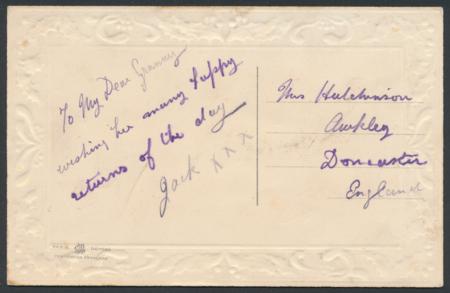 To My Dear Granny
wishing her many happy
returns of the day
Jack x x x
Mrs Hutchinson
Auckley
Doncaster
England